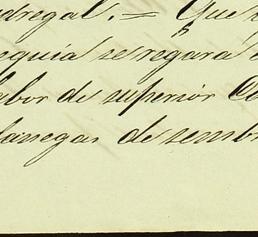 adregal. = Que
equia se regara
abor de superior Ca
fanegas de sembr